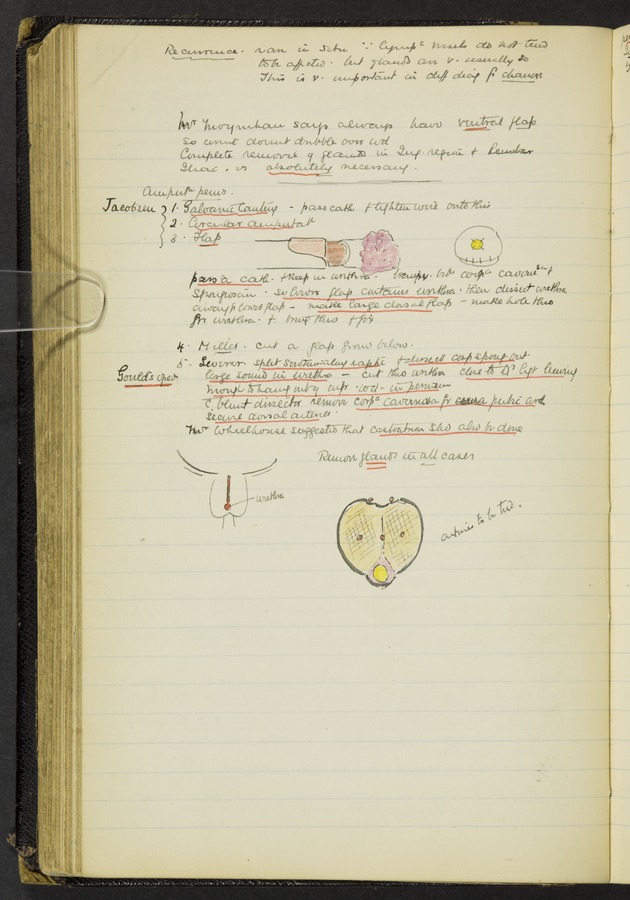 Recurrence. rare in situ ∵ lymphc vessels do not tend
to be affected. but glands are v. usually so
This is v. important in diff diag fr chancre
Mr Moynihan says always have ventral flap
so urine doesnt dribble over wd
Complete removal of glands in Ing. region &
Iliac. is absolutely necessary.
Amputn penis.
Jacobson 1. Galvanic Cautery - pass cath & tighten wire onto this
2. Circular amputatn
3. Flap
pass a cath. & keep in urethra. betw. corpa cavern
Spongiosum. so lower flap contains urethra. then dissect urethra
away flap - make large dorsal flap - make hole thro
for urethra. & bring thro & fix
4. Miller. cut a flap from below.
5. split scrotum along raphe & dissect corp spong out
Gould's oper large sound in urethra - cut thro urethra close to ligt leaving
enough to hang into wd in perineum
c. blunt director remove corpa cavernosa fr pubic arch
secure dorsal arteries.
Mr Wheelhouse suggested that castration shd also be done
Remove glands in all cases
urethra
arteries to be tied.